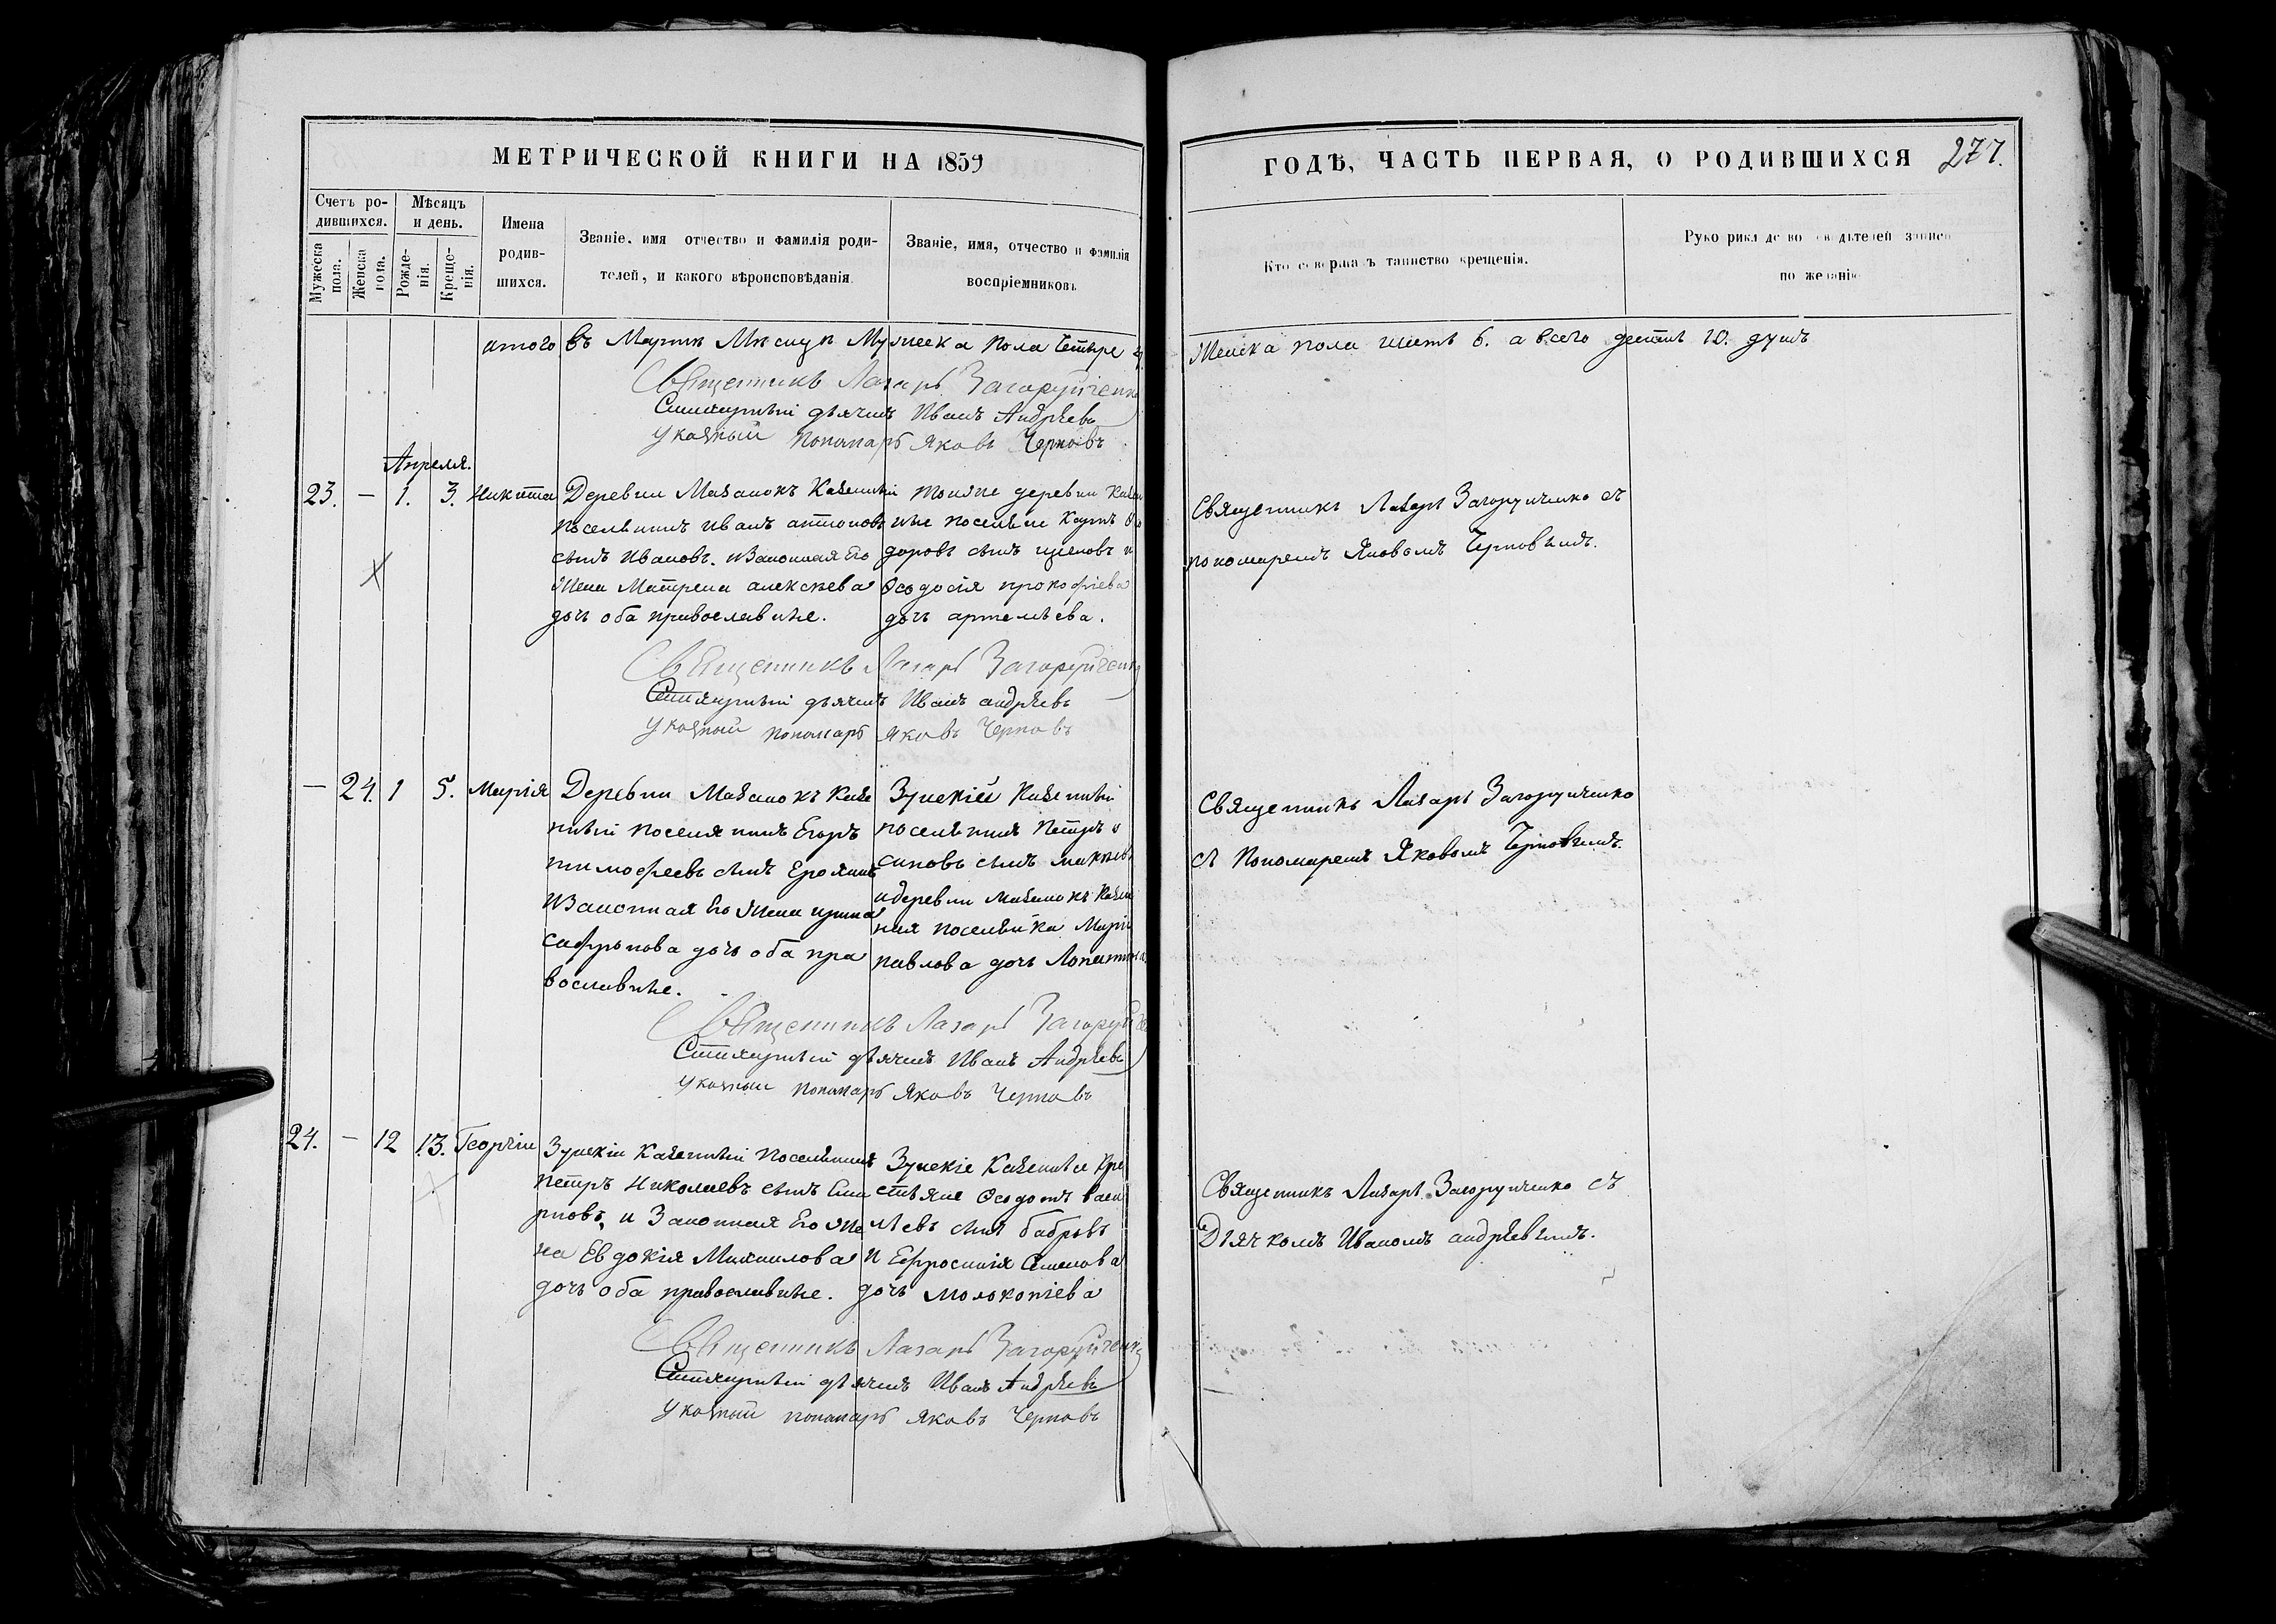 МЕТРИЧЕСКОЙ КНИГИ НА 1859
ГОДЪ, ЧАСТЬ ПЕРВАЯ, О РОДИВШИХСЯ 277.
Счетъ ро-
дившихся.
Мужеска пола.
Женска пола.
Мѣсяцъ
и день.
Рожде-
нія.
Креще-
нія.
Имена
родив-
шихся.
Званіе, имя отчество и фамилія роди-
телей, и какого вѣроисповѣданія
Званіе, имя, отчество и фамилія
воспріемниковъ
Кто совершалъ таинство крещенія.
Рукоприкладство свидѣтелей записи
по желанію
итого въ Мартѣ Мѣсяцѣ Мужеска пола четыре 4.
Женска пола шесть 6. а всего десять 10. душъ
Священникъ Лазарь Загоруйченко
Стихарный дьячекъ Иванъ Андрѣевъ
Указный пономарь Яковъ Черновъ
Апреля.
23. — 1. 3. Никита
Деревни Мазанокъ Казенный
поселянинъ Иванъ антоновъ
сынъ Ивановъ. и Законная Его
Жена Матрена алексѣева
дочь оба православные.
тоиже деревни Казен
ные поселяне Карпъ Ѳео
доровъ сынъ и
Ѳеодосія прокофіева
дочь артемьева.
Священникъ Лазарь Загоруйченко съ
пономаремъ Яковомъ Черновымъ.
Священникъ Лазарь Загоруйченко
Стихарный дьячекъ Иванъ андрѣевъ
Указный пономарь Яковъ Черновъ
— 24. 1 5. Марія
Деревни Мазанокъ Казе
нный поселянинъ Егоръ
тимофеевъ сынъ
и Законная Его Жена ирина
софронова дочь оба пра
вославные.
Зуйскій Казенный
поселянинъ Петръ о
сиповъ сынъ
и деревни Мазанокъ Казен
ная поселянка Марія
павлова дочь
Священникъ Лазарь Загоруйченко
съ Пономаремъ Яковомъ Черновымъ.
Священникъ Лазарь Загоруйченко
Стихарный дьячекъ Иванъ Андрѣевъ
Указный пономарь Яковъ Черновъ
24. — 12 13. Георгіи
Зуйскіи Казенный поселянинъ
петръ Николаевъ сынъ
и Законная Его Же
на Евдокія Михаилова
дочь оба православные.
Зуйскіе Казенные Кре
стьяне Ѳеодотъ васи
льевъ сынъ бобровъ
и Ефросинія Семенова
дочь
Священникъ Лазарь Загоруйченко съ
Дьячкомъ Иваномъ андрѣевымъ.
Священникъ Лазарь Загоруйченко
Стихарный дьячекъ Иванъ Андрѣевъ
Указный пономарь Яковъ Черновъ